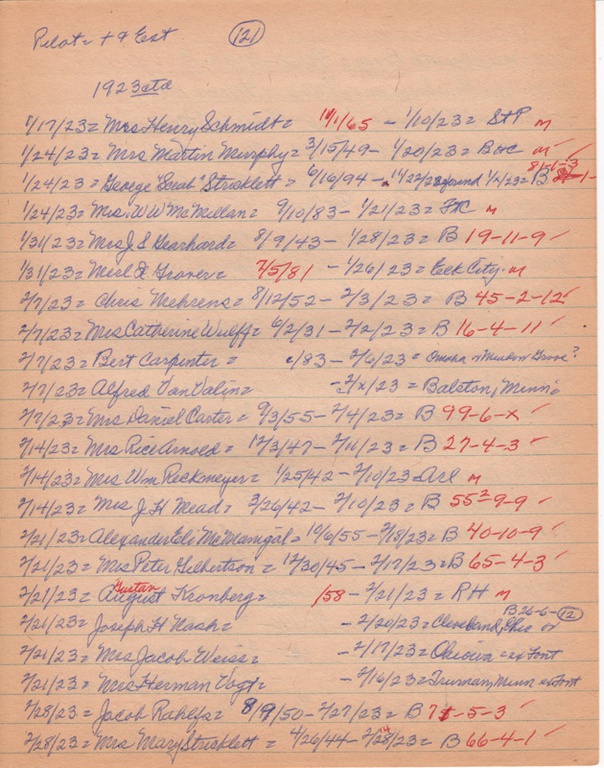 Pilot = + & Ext (121)
1923 etd
1/17/23 = Mrs Henry Schmidt = 11/1/65 - 1/10/23 = StP m
1/24/23 = Mrs Martin Murphy = 3/15/49 - 1/20/23 = B+C m
8/5/-3
1/24/23 = George "Scub" Stricklett = 6/16/94 - 11/22/22 found 1/21/23 = B
1/24/23 = Mrs. W W McMillan = 9/10/83 - 1/21/23 = FtC m
1/31/23 = Mrs J S Gearhard = 8/9/43 - 1/28/23 = B 19-11-9 ✓
1/31/23 = Merl F Grover = 7/5/81 - 1/26/23 = Eck City m
2/7/23 = Chris Mehrens = 8/12/52 - 2/3/23 = B 45-2-12 ✓
2/7/23 = Mrs Catherine Wulff = 6/2/31 - 2/2/23 = B 16-4-11 ✓
2/7/23 = Bert Carpenter = c/83 - 2/6/23 = Omaha or Meadow Grove?
2/7/23 = Alfred VanValin = - 2/x/23 = Balston, Minn =
2/7/23 = Mrs Daniel Carter = 9/3/55 - 2/4/23 = B 99-6-x ✓
2/14/23 = Mrs Rice Arnold = 12/3/47 - 2/11/23 = B 27-4-3 ✓
2/14/23 = Mrs Wm Reckmeyer = 1/25/42 - 2/10/23 = Arl m
2/14/23 = Mrs J H Mead = 3/26/42 - 2/10/23 = B 55²-9-9 ✓
2/21/23 = Alexander Eli McManigal = 10/6/55 - 2/18/23 = B 40-10-9 ✓
2/21/23 = Mrs Peter Gilbertson = 12/30/45 - 2/17/23 = B 65-4-3 ✓
Gustav
2/21/23 = August Kronberg = /58 - 2/21/23 = RH m
B 26-6-(12)
2/21/23 = Joseph H Nash = - 2/20/23 = Cleveland, Ohio or
2/21/23 = Mrs Jacob Weiss = - 2/17/23 = Ohiowa = ex Font
2/21/23 = Mrs Herman Vogt = - 2/16/23 = Truman, Minn ex Font
2/28/23 = Jacob Rahlfs = 8/9/50 - 2/27/23 = B 75-5-3 ✓
2/28/23 = Mrs Mary Stricklett = 4/26/44 - 2/28/23 = B 66-4-1 ✓